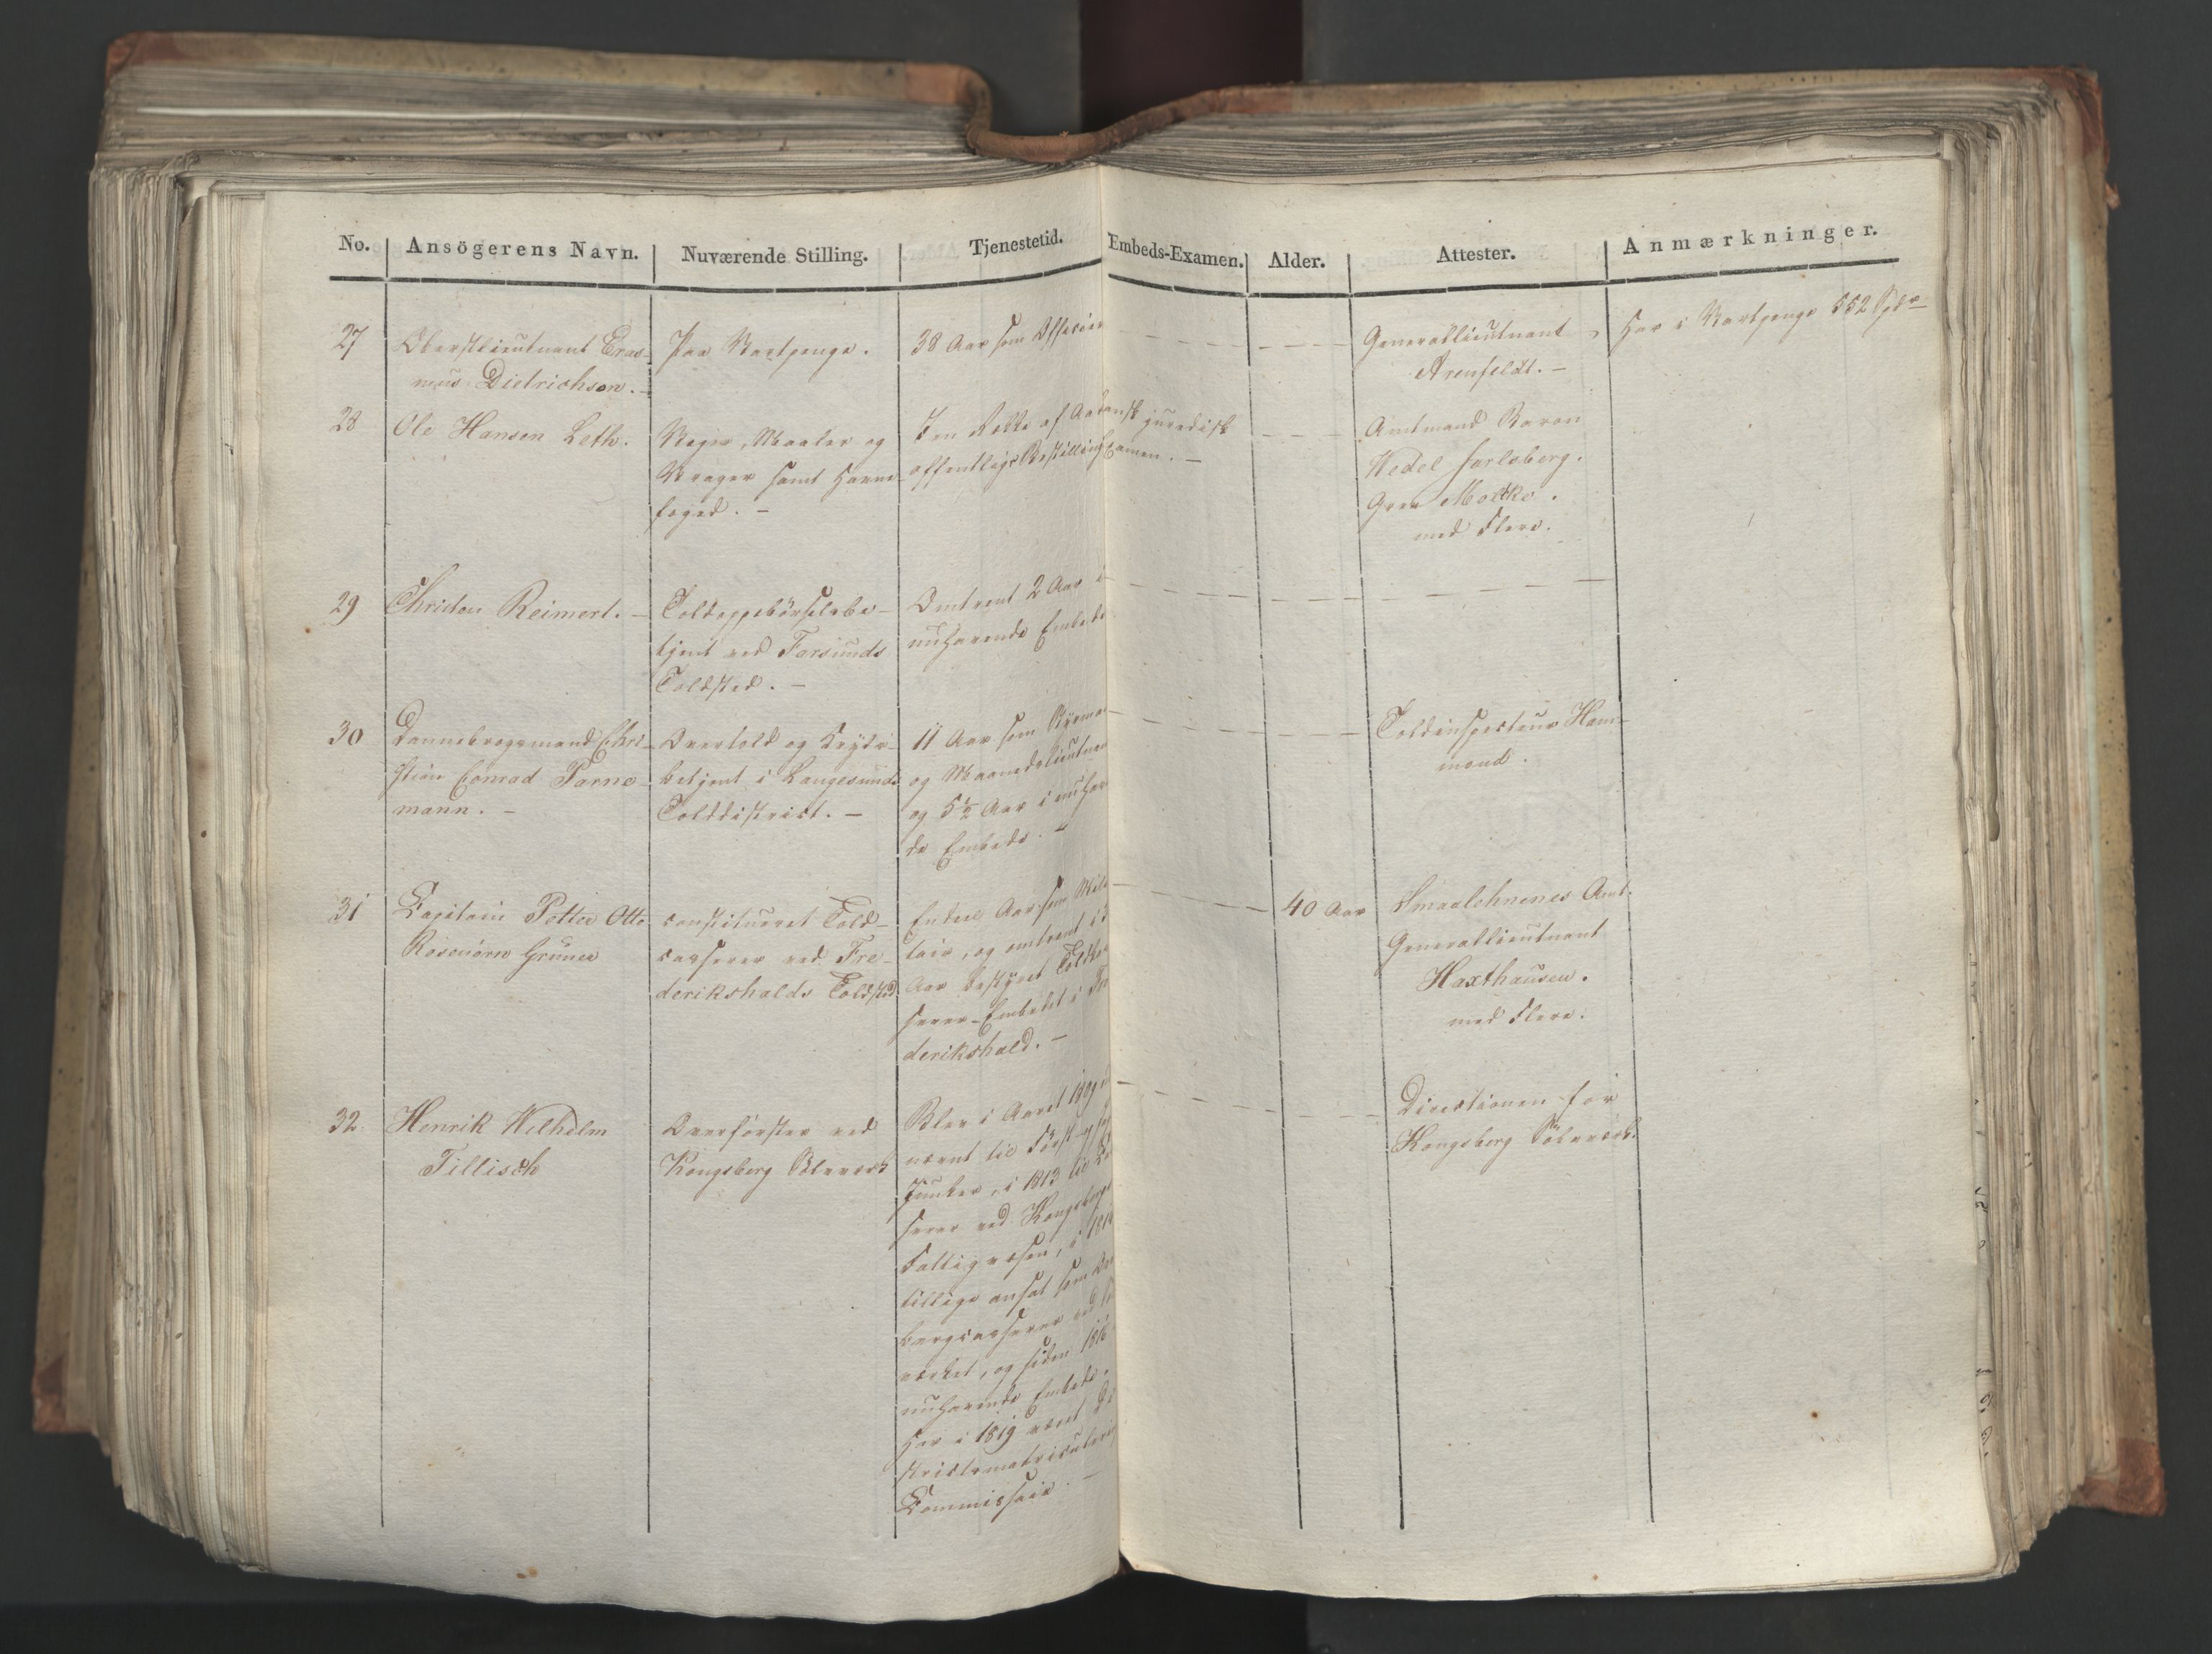 No. Ansögerens Navn. Nuværende Stilling. Tjenestetid. Embeds-Examen. Alder. Attester. Anmærkninger.
27
Oberstlieutnant Eras-
mus Dietrichson. -
Paa Vartpenge.
38 Aar som Officeer
Generallieutnant
Arenfeldt. -
Har i Vartpenge 552 Spdr
28
Ole Hansen Leth.
Vejer, Maaler og
Vrager samt Havne-
foged. -
I en Række af Aar
offentlige Bestillinger
dansk juridisk
Examen. -
Amtmand Baron
Wedel Jarlsberg.
Grev Moltke.
med Flere.
29
Christen Reimert. -
Toldoppebörselsbe-
tjent ved Farsunds
Toldsted. -
Omtrent 2 Aar i
nuhavende Embede
30
Dannebrogsmand Chri-
stian Conrad Parne-
mann. -
Overtold og Kryds-
betjent i Langesunds
Tolddistrict. -
11 Aar som
og Maanedslieutnan
og 5½ Aar i nuhaven
de Embede. -
Toldinspecteur Ham-
mond.
31
Capitain Petter Otto
Rosenörn Grüner
constitueret Told-
casserer ved Fre-
derikshalds Toldsted
Endeel Aar som Mili
tair, og omtrent
Aar bestyret Toldkas
serer-Embedet i Fre
derikshald. -
40 Aar
Smaalehnenes Amt.
Generallieutnant
Haxthausen.
med Flere.
32.
Henrik Wilhelm
Tillisch
Overförster ved
Kongsberg Sölvværk
Blev i Aaret 1809
nævnt til Forst- og
Junker, i 1813 til Ca
serer ved Kongsbergs
Fattigvæsen, i 1814
tillige ansat som
bergcasserer ved
værket, og siden 1816
nuhavende Embede.
Har i 1819 været Di
strictsmatriculerings
Commissair. -
Directionen for
Kongsberg Sölvværk.